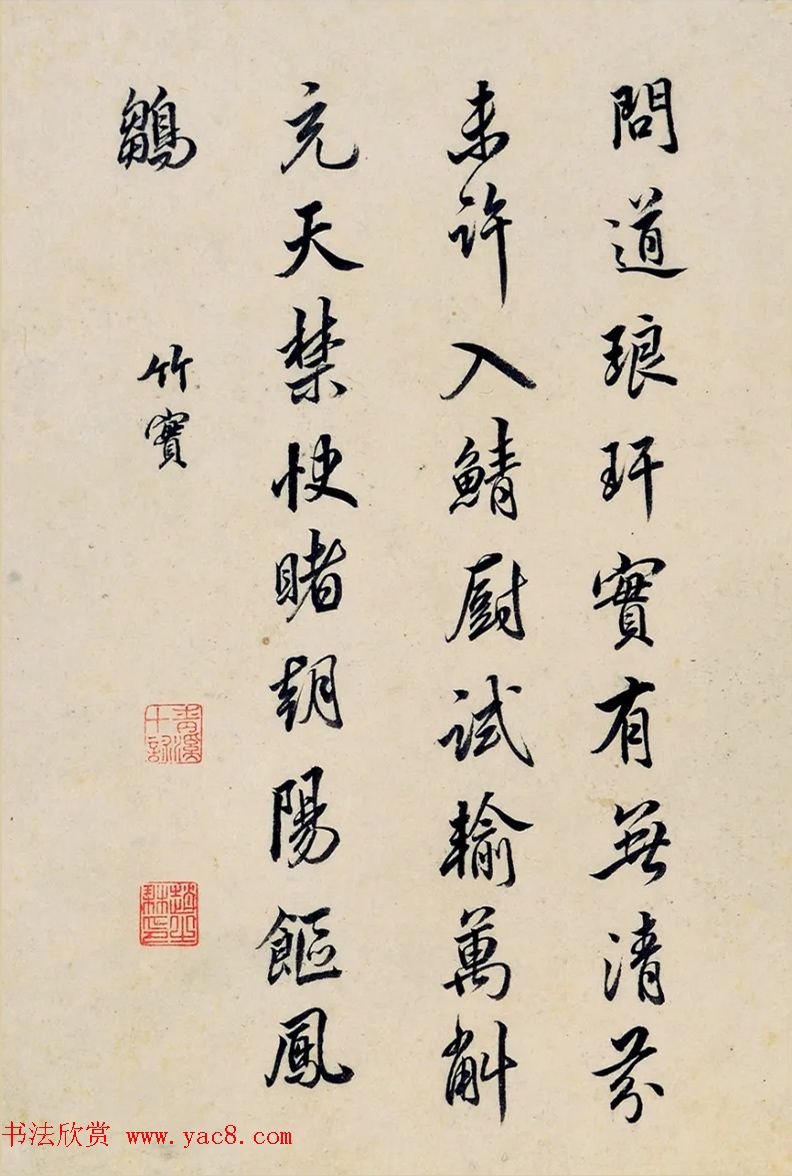 問道琅玕實有無清芬
未許入鯖厨試輸萬斛
充天禁快睹朝陽饇鳳
鶵
竹實
书法欣赏 www.yac8.com